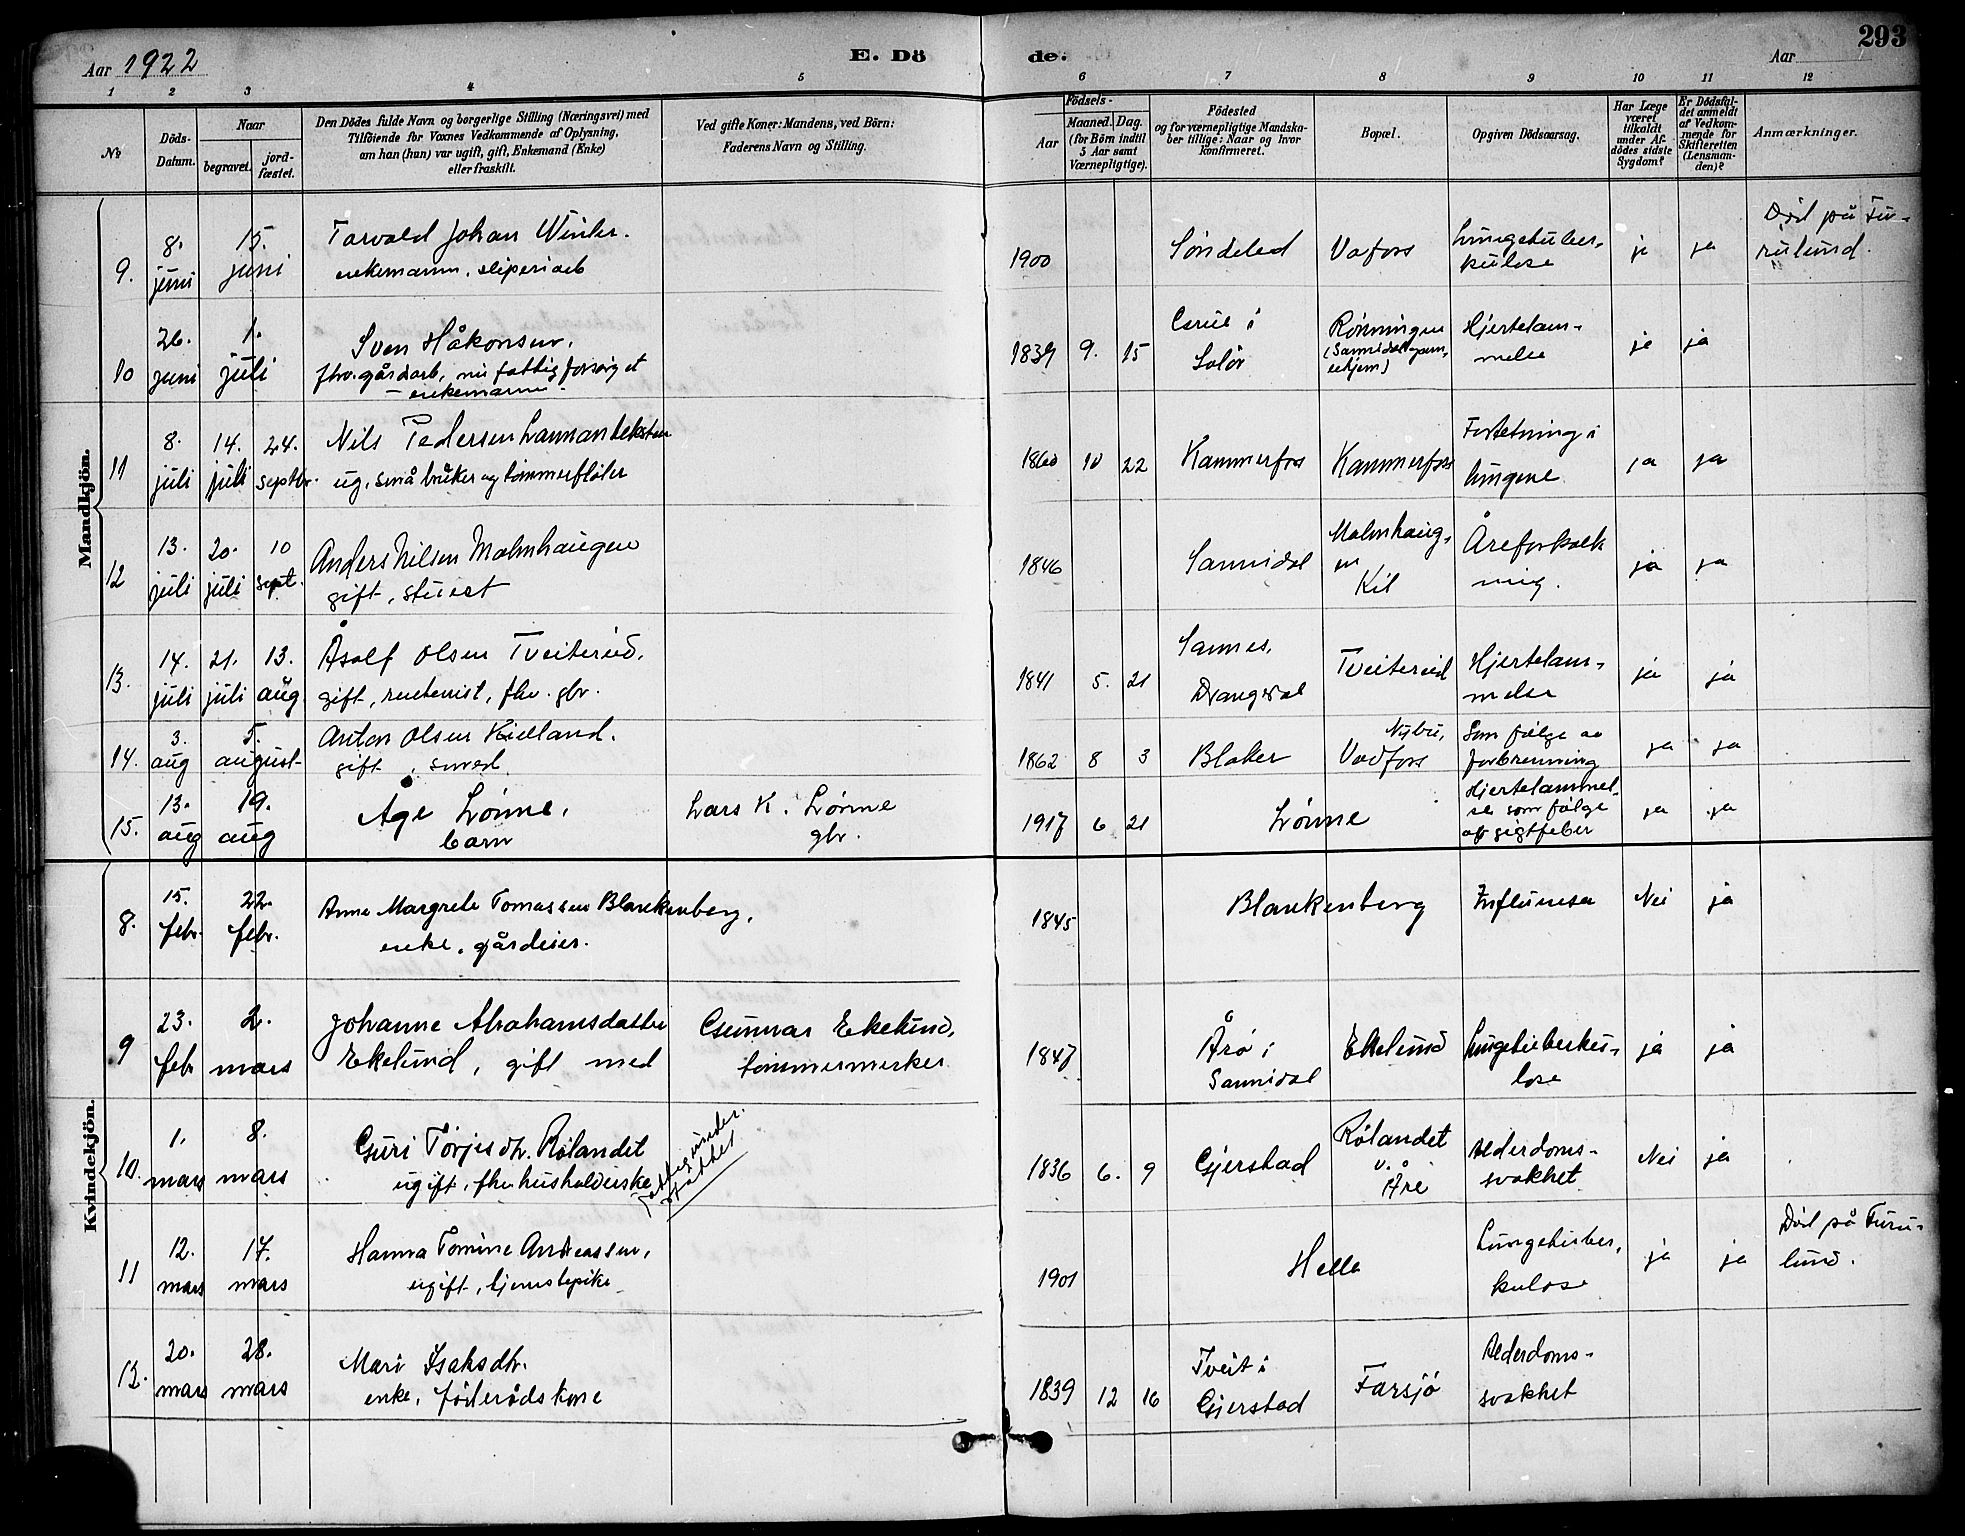 Aar 1922
E. Döde.
Aar
293
1 2 3 4 5 6 7 8 9 10 11 12
No
Döds-Datum.
Naar
begravet.
jord-fæstet.
Den Dödes fulde Navn og borgerlige Stilling (Næringsvei) med
Tilföiende for Voxnes Vedkommende af Oplysning,
om han (hun) var ugift, gift, Enkemand (Enke)
eller fraskilt.
Ved gifte Koner: Mandens, ved Börn:
Faderens Navn og Stilling.
Födsels-
Aar
Maaned. Dag.
(for Börn indtil
5 Aar samt
Værnepligtige).
Födested
og for værnepligtige Mandska-
ber tillige: Naar og hvor
konfirmeret.
Bopæl.
Opgiven Dödsaarsag.
Har Læge
været
tilkaldt
under Af-
dödes sidste
Sygdom?
Er Dödsfal-
det anmeldt
af Vedkom-
mende for
Skifteretten
(Lensman-
den)?
Anmærkninger.
Mandkjön.
9. 8. juni 15. juni
Torvald Johan Winter.
enkemann, sliperiarb
1900 Søndeled Vafoss
Lungetuber-
kulose
ja ja
Död på Fu-
rulund.
10 26. juni 1. juli
Sven Håkonsen,
fhv. gårdarb, nu fattigforsörget
- enkemann -
1839 9. 15
i
Solör
Rönningen
Hjertelam-
melse
ja ja
11 8. juli 14. juli 24. septbr.
Nils Pedersen
ug, småbruker og tömmerflöter
1860 10 22 Kammerfoss Kammerfoss
Fortetning i
lungene
ja ja
12 13. juli 20. juli 10 sept.
Anders Nilsen Malmhaugen
gift, stuert
1846 Sannidal
Malmhaug-
en
Kil
Åreforkalk
ning.
ja ja
13. 14. juli 21. juli 13. aug.
Åsolf Olsen Tveitereid,
gift, rentenist, fhv. gbr.
1841 5. 21
Sannes,
Drangedal
Tveitereid
Hjertelam-
melse
ja ja
14. 3. aug 5. august
Anton Olsen Kielland.
gift, smed
1862 8 3 Blaker
Nybu,
Vadfoss
Som følge av
forbrenning
ja ja
15. 13. aug 19. aug
Åge Lönne,
barn
Lars K. Lönne
gbr.
1917 6 21 Lönne
Hjertelammel-
se som følge
af gigtfeber
ja ja
Kvindekjön.
8. 15. febr. 22. febr.
Anne Margrete Tomassen Blankenberg,
enke, gårdeier.
1845 Blankenberg Influensa Nei ja
9 23. febr 2. mars
Johanne Abrahamsdatter
Ekelund, gift med
Gunnar Ekelund,
tømmermerker
1847
Årø i
Sannidal
Ekelund
Lungetuberku-
lose
ja ja
10. 1. mars 8. mars
Guri Torjusdtr. Rölandet
ugift, fhv husholderske
Fattigunder-
støttet
1836 6. 9 Gjerstad
Rölandet
v.
Åre
Alderdoms-
svakhet
Nei ja
11 12. mars 17. mars
Hanna Tomine Andreassen,
ugift, tjenestepike
1901 Helle
Lungetuber-
kulose
ja ja
Död på Furu-
lund.
12. 20. mars 28. mars
Mari Isaksdtr.
enke, föderådskone
1839 12 16
Tveit i
Gjerstad
Farsjö
Alderdoms-
svakhet